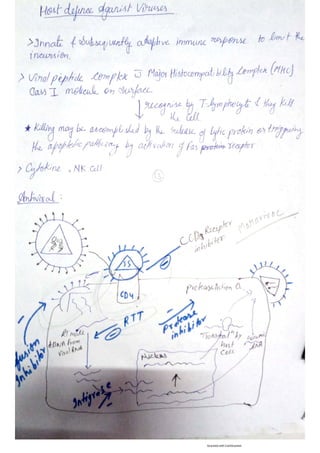 Host defence against Viruses
>Innate & subsequently adaptive immune response to limit the
incursion.
> Viral peptide complex c̄ Major Histocompatibility Complex (MHC)
Class I molecule on surface.
recognise by T-lymphocyte & they kill
the cell.
* Killing may be accomplished by the release of lytic protein or triggering
the apoptotic pathway by activation of Fas protein receptor
> Cytokine, NK cell
Antiviral :-
CCR5 Receptor
inhibitor
CD4
Protease action
RTT
Protease
inhibitor
fusion
Inhibitor
DNA from
Viral RNA
Nucleus
Transcript by
host
Cell
RNA
Intigrase
Scanned with CamScanner